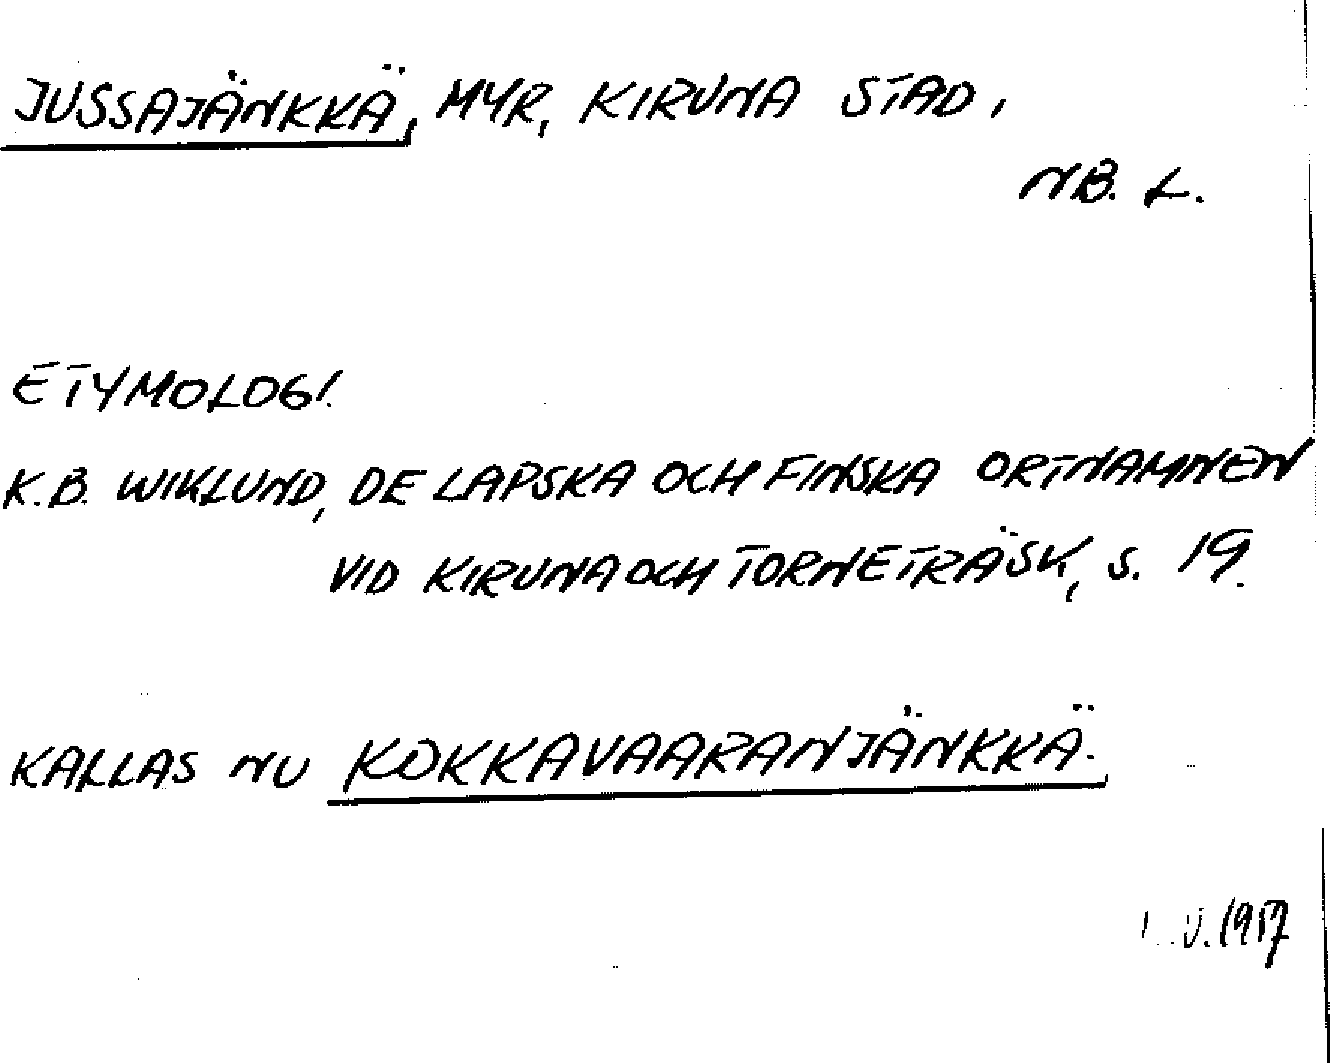 JUSSAJÄNKKÄ, MYR, KIRUNA STAD,
NB. L.
ETYMOLOGI.
K.B. WIKLUND, DE LAPSKA OCH FINSKA ORTNAMNEN
VID KIRUNA OCH TORNETRÄSK, S. 19.
KALLAS NU KOKKAVAARANJÄNKKÄ.